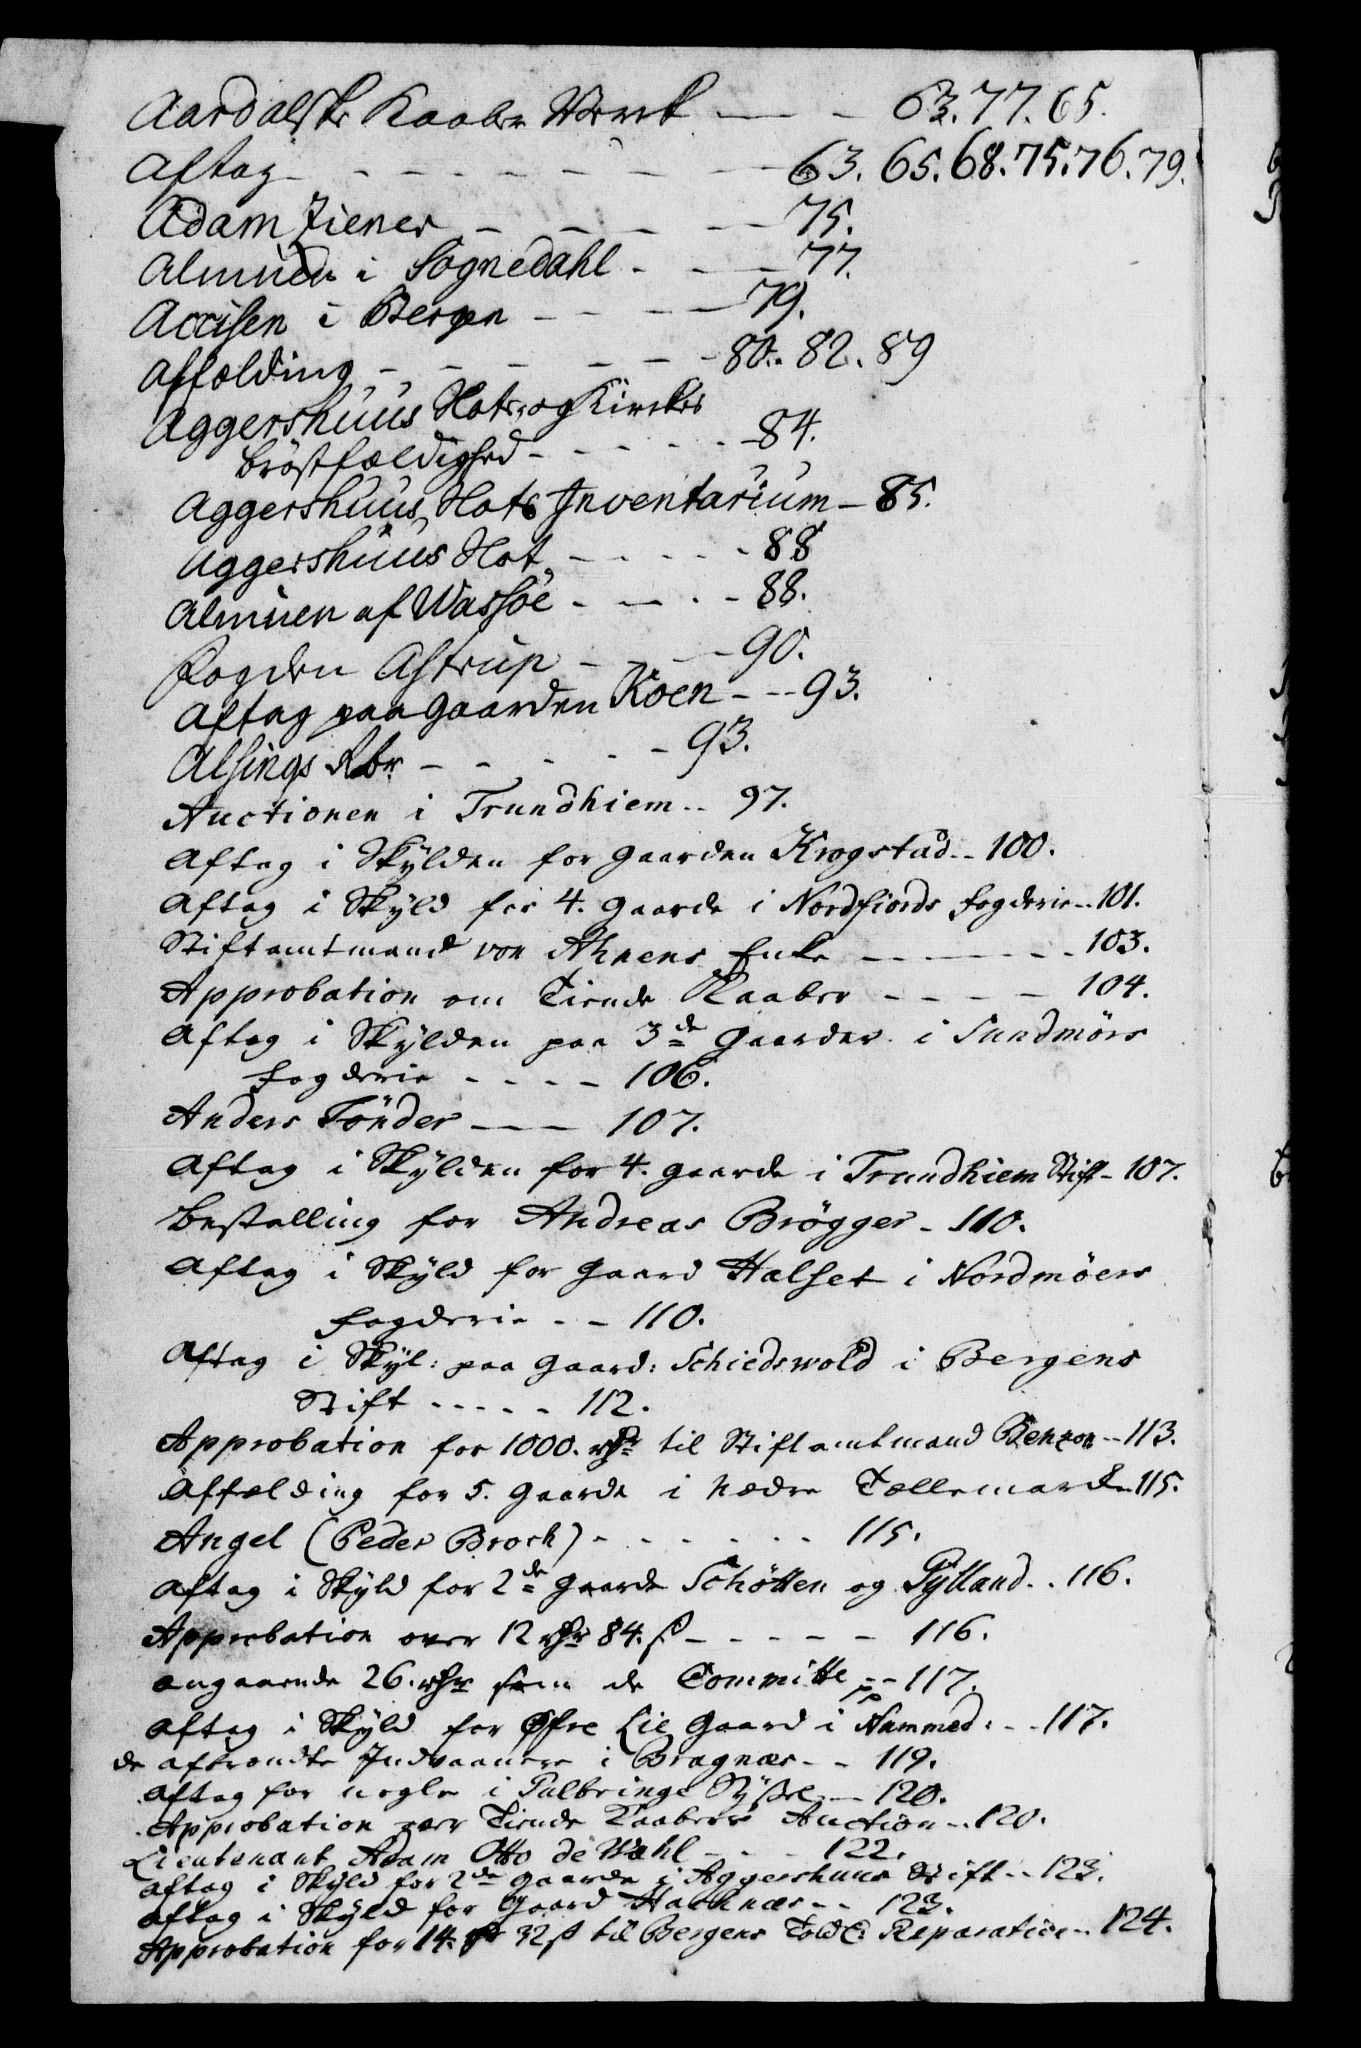 Aardalske Kaaber Værk — — - 63. 77. 65.
Aftag - - - - - - - 63. 65. 68. 75. 76. 79.
Adam Ziener - - - - 75.
Almuen i Sognedahl - - - 77.
Accisen i Bergen - - - - 79.
Affælding - - - - - - 80. 82. 89
Aggershuus Slots og Kirckes
brøstfældighed - - - - - 84.
Aggershuus Slots Inventarium - 85.
Aggershuus Slot - - - - - 88
Almuen af Wassøe - - - - 88.
Fogden Astrup - - - - 90.
Aftag paa Gaarden Köen - - - 93.
Alsings Rbr - - - - - 93.
Auctionen i Trundhiem - - 97.
Aftag i Skylden for Gaarden Krogstad - - 100.
Aftag i Skyld for 4. Gaarde i Nordfiords Fogderie - - 101.
Stiftamtmand von Ahnens Enke - - - - - - 103.
Approbation om Tiende Kaaber - - - - 104.
Aftag i Skylden paa 3de Gaarder i Sundmörs
Fogderie - - - - 106.
Anders Tönder - - - 107.
Aftag i Skylden for 4. gaarde i Trundhiem Stift - 107.
Bestalling for Andreas Brögger - 110.
Aftag i Skyld for Gaard Halset i Nordmöers
Fogderie - - 110.
Aftag i Skyl: paa Gaard: Schiedswold i Bergens
Stift - - - - - 112.
Approbation for 1000. rdr til Stiftamtmand Benzon - - 113.
Affælding for 5. Gaarde i Nædre Tællemarken 115.
Angel (Peder Broch) - - - - - - - 115.
Aftag i Skyld for 2de Gaarde Schötten og Pytland. - 116.
Approbation over 12 rdr 84. ß - - - - - 116.
angaaende 26. rdr som de Committe - - 117.
Aftag i Skyld for Øfre Lie Gaard i Nummed: - - 117.
de afbrændte Indvaanere i Bragnæs - - 119.
Aftag for nogle i Palbringe Sÿssel - 120.
Approbation over Tiende Kaabers Auction - - 120.
Lieutenant Adam Otto de Wahl - - - 122.
Aftag i Skyld for 2de Gaarde i Aggershuus Stift - - 123.
Aftag i Skyld for Gaard Hachnæs - - 123.
Approbation for 14. rdr 32 ß til Bergens Told C: Reparation - - 124.